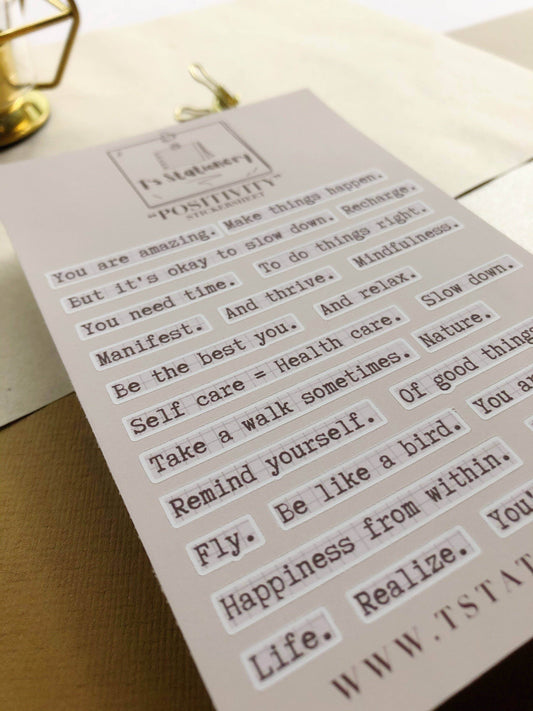 T's Stationery
"POSITIVITY"
STICKERSHEET
You are amazing. Make things happen.
But it's okay to slow down. Recharge.
You need time. To do things right.
Manifest. And thrive. Mindfulness.
Be the best you. And relax.
Self care = Health care. Slow down.
Take a walk sometimes. Nature.
Remind yourself. Of good things
Be like a bird. You
Fly.
Happiness from within.
Life. Realize.
WWW.TSTAT